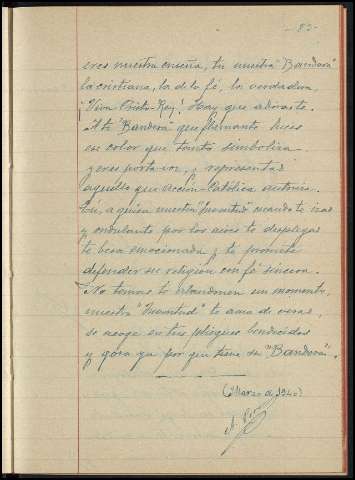 -83-
eres nuestra enseña, tu nuestra "Bandera"
la cristiana, la de fé, la verdadera.
¡Viva Cristo-Rey! Hay que adorarte.
A tí "Bandera" que flameante luces
ese color que tanto simboliza
y eres portavoz, y representas
aquello que Acción-Católica autoriza.
Tú, a quien nuestra "Juventud" cuando te izas
y ondulante por los aires te despliegas
te besa emocionada y te promete
defender su religión con fé sincera.
No temas te abandonen un momento,
nuestra "Juventud" te ama de veras,
se acoge en tus pliegues bendecidos
y goza ya por que tiene su "Bandera".
(Marzo de 1940)